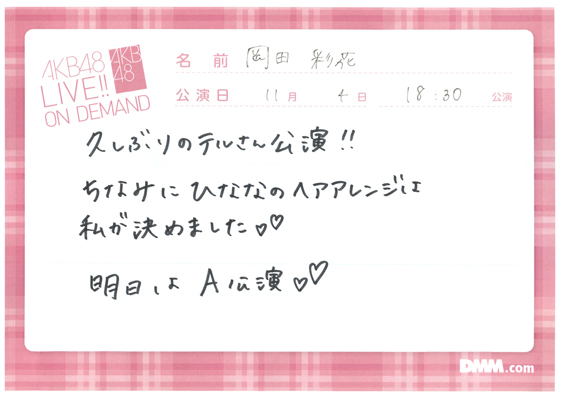 AKB48
LIVE!!
ON DEMAND
AKB
48
名前 岡田 彩花
公演日 11月 4日 18:30 公演
久しぶりのテルさん公演!!
ちなみにひななのヘアアレンジは
私が決めました♡♡
明日は A公演♡♡
DMM.com